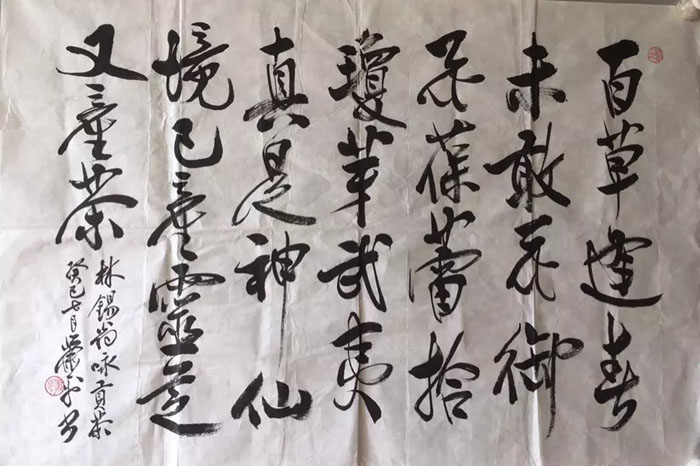 百草逢春
未敢花御
花葆蕾拾
瓊芽武夷
真是神仙
境已產靈芝
又產茶
林錫翁詠貢茶
癸巳七月書